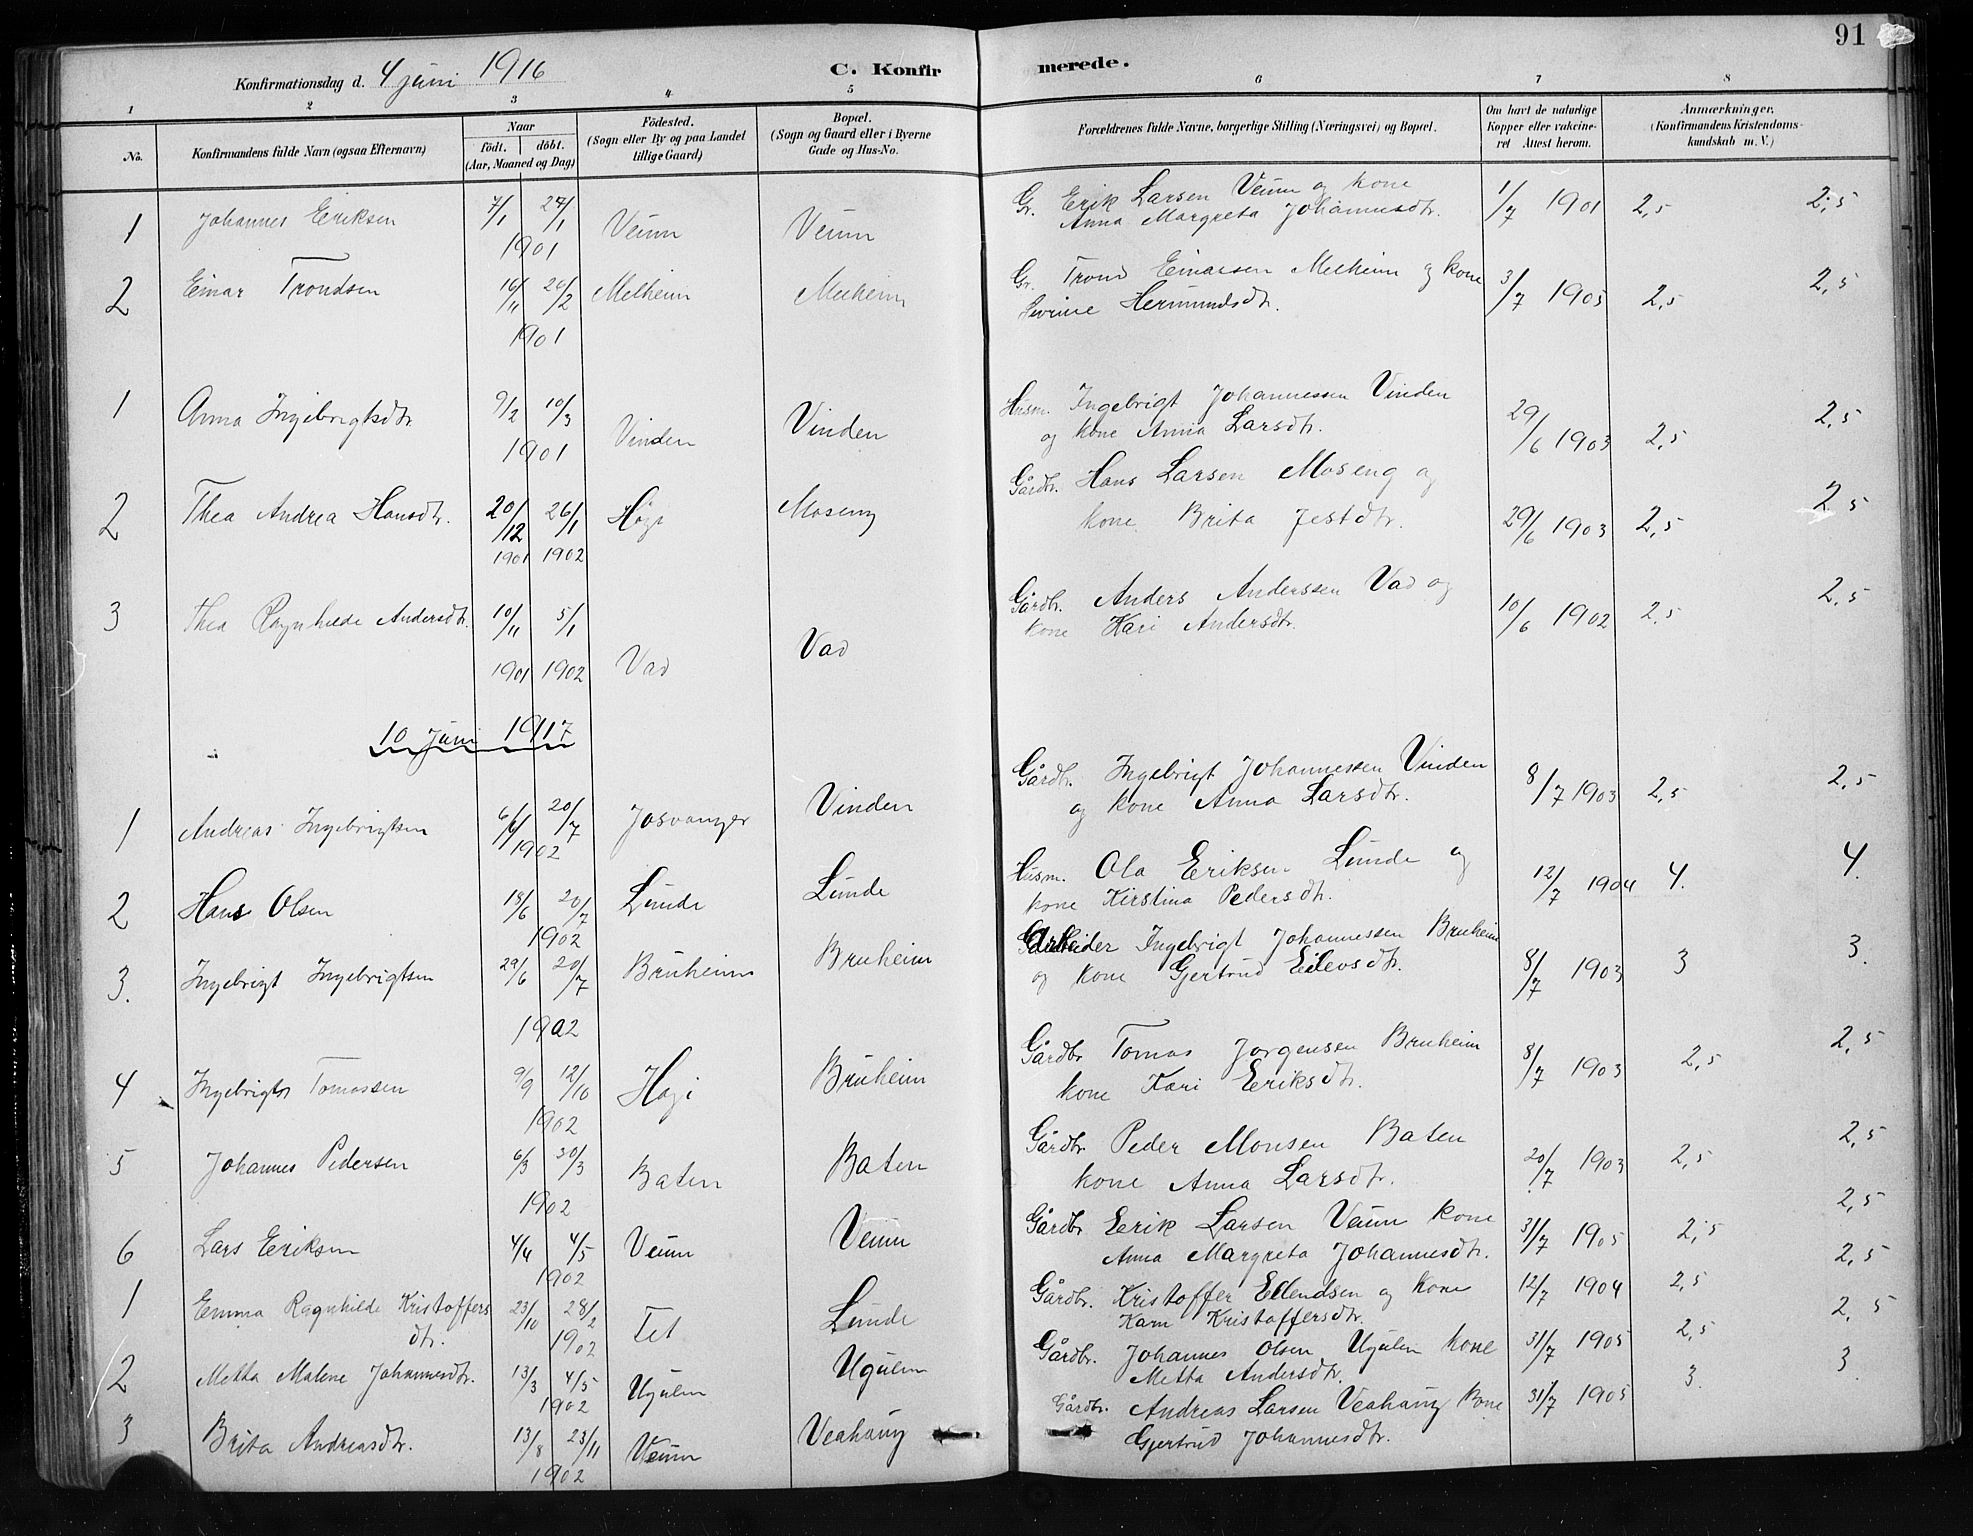 91
Konfirmationsdag d. 4 juni 1916
C. Konfirmerede.
1 2 3 4 5 6 7 8
No.
Konfirmandens fulde Navn (ogsaa Efternavn)
Naar
födt. döbt.
(Aar, Maaned og Dag)
Födested.
(Sogn eller By og paa Landet
tillige Gaard)
Bopæl.
(Sogn og Gaard eller i Byerne
Gade og Hus-No.
Forældrenes fulde Navne, borgerlige Stilling (Næringsvei) og Bopæl.
Om havt de naturlige
Kopper eller vakcine-
ret Attest herom.
Anmærkninger,
(Konfirmandens Kristendoms-
kundskab m. V.)
1 Johannes Eriksen 7/1 27/1 1901 Veum Veum
Gr. Erik Larsen Veum og kone
Anna Margreta Johannesdtr. 1/7 1901 2,5 2,5
2 Einar Trondsen 16/11 1901 Melheim Melheim
Gr. Trond Einarsen Melheim og kone
Sevrine Hermundsdtr. 3/7 1905 2,5 2,5
1 Anna Ingebrigtsdtr 9/2 10/3 1901 Vinden Vinden
Husm. Ingebrigt Johannessen Vinden
og kone Anna Larsdtr. 29/6 1903 2,5 2,5
2 Thea Andrea Hansdtr. 20/12 1901 26/1 1902 Moseng
Gårdbr. Hans Larsen Moseng og
kone Brita Jestdtr. 29/6 1903 2,5 2,5
3 Thea Ragnhilde Andersdtr. 10/11 1901 5/1 1902 Vad Vad
Gårdbr. Anders Anderssen Vad og
kone Kari Andersdtr. 10/6 1902 2,5 2,5
10 Juni 1917
1 Andreas Ingebrigtsen 6/6 20/7 1902 Josvanger Vinden
Gårdbr. Ingebrigt Johannessen Vinden
og kone Anna Larsdtr. 8/7 1903 2,5 2,5
2 Hans Olsen 18/6 20/7 1902 Lunde Lunde
Husm. Ola Eriksen Lunde og
kone Kirstina Pedersdtr. 12/7 1904 4. 4.
3. Ingebrigt Ingebrigtsen 29/6 20/7 1902 Bruheim Bruheim
Arbeider Ingebrigt Johannessen Bruheim
og kone Gjertrud Eilevsdtr. 8/7 1903 3 3.
4 Ingebrigt Tomassen 9/9 12/10 1902 Bruheim
Gårdbr Tomas Jorgensen Bruheim
kone Kari Eriksdtr. 8/7 1903 2,5 2,5
5 Johannes Pedersen 6/3 30/3 1902 Baten Baten
Gårdbr Peder Monsen Baten
kone Anna Larsdtr. 20/7 1903 2,5 2,5
6 Lars Eriksen 4/4 4/5 1902 Veum Veum
Gårdbr Erik Larsen Veum kone
Anna Margreta Johannesdtr. 31/7 1905 2,5 2,5
1 Emma Ragnhilde Kristoffers
dtr. 23/10 28/2 1902 Tet Lunde
Gårdbr. Kristoffer Ellendsen og kone
Kari Kristoffersdtr. 12/7 1904 2,5 2,5
2 Metta Malene Johannesdtr. 13/3 4/5 1902 Ugulen Ugulen
Gårdbr. Johannes Olsen Ugulen kone
Metta Andersdtr. 31/7 1905 2,5 2,5
3 Brita Andreasdtr. 13/8 23/11 1902 Veum Veahaug
Gårdbr. Andreas Larsen Veahaug kone
Gjertrud Johannesdtr. 31/7 1905 3. 3.